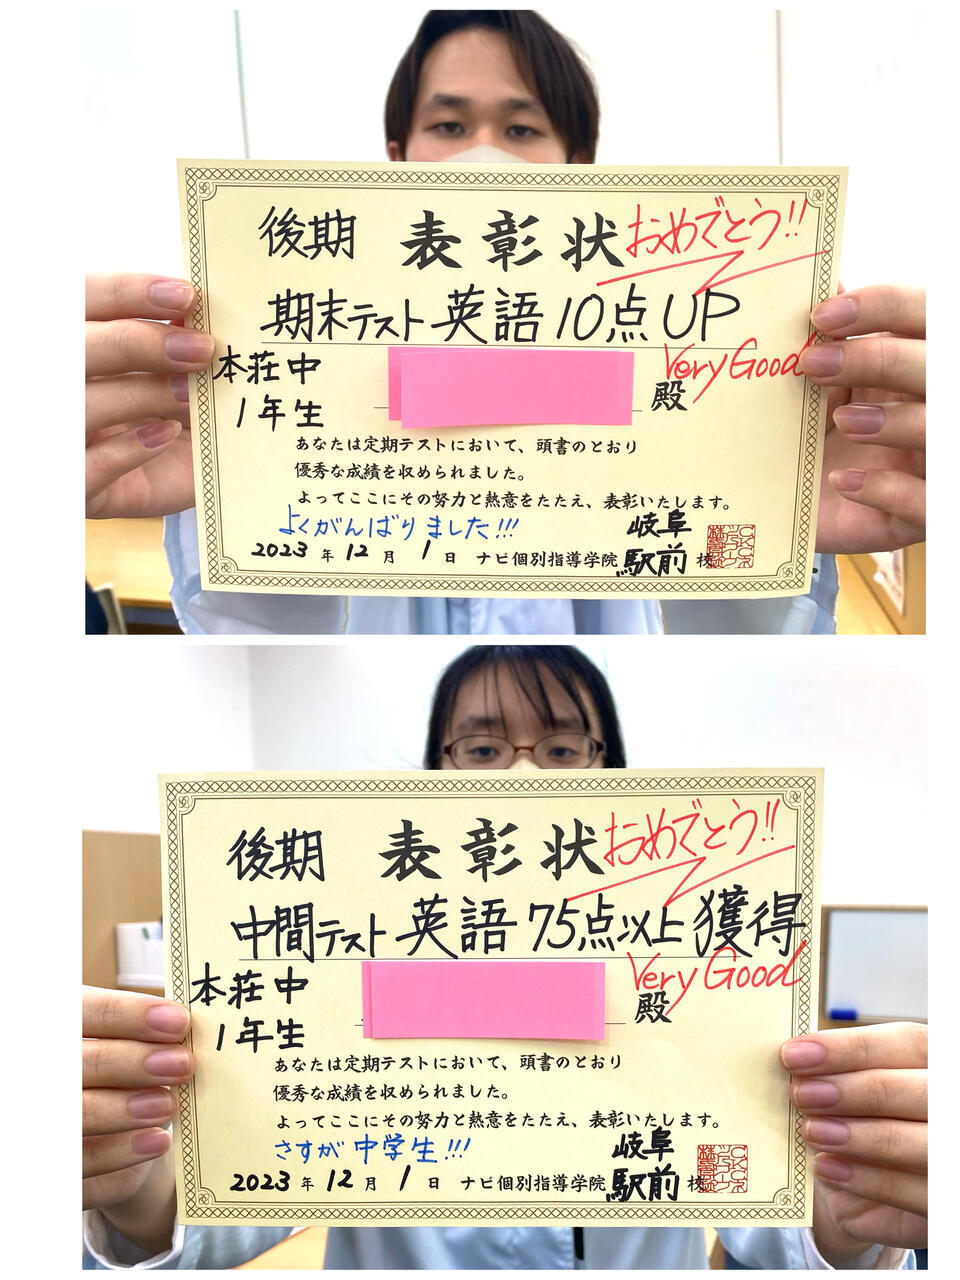 後期 表彰状 おめでとう!!
期末テスト 英語 10点 UP
Very Good
本荘中
1年生
殿
あなたは定期テストにおいて、頭書のとおり
優秀な成績を収められました。
よってここにその努力と熱意をたたえ、表彰いたします。
よくがんばりました!!!
岐阜
2023年12月1日 ナビ個別指導学院 駅前 校
後期 表彰状 おめでとう!!
中間テスト 英語 75点以上 獲得
Very Good
本荘中
1年生
殿
あなたは定期テストにおいて、頭書のとおり
優秀な成績を収められました。
よってここにその努力と熱意をたたえ、表彰いたします。
さすが中学生!!!
岐阜
2023年12月1日 ナビ個別指導学院 駅前 校